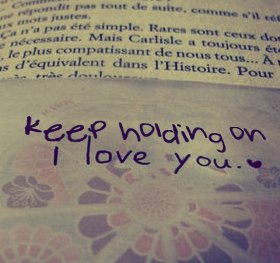 ne répondit pas tout de suite, comme s'il
mots justes.
Ça n'a pas été simple. Rares sont ceux
nécessaire. Mais Carlisle a toujours
, le plus compatissant de nous tous... À
d'équivalent dans l'Histoire. Pour
très
keep holding on
I love you.